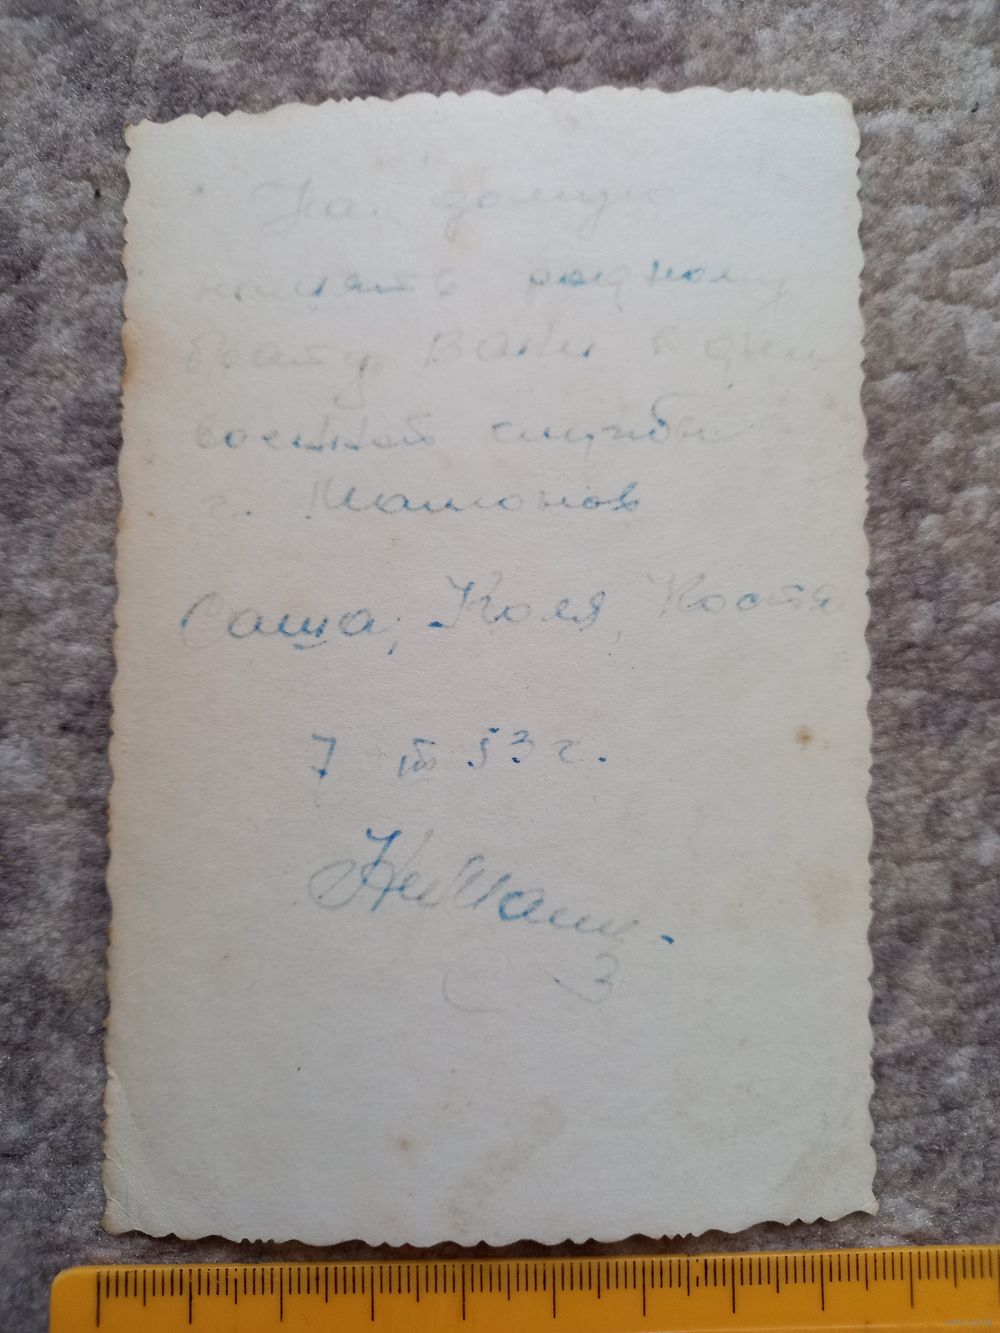 На долгую
память родному
брату Вани в дни
военной службы
г.
Саша, Коля, Костя
7 III 53 г.